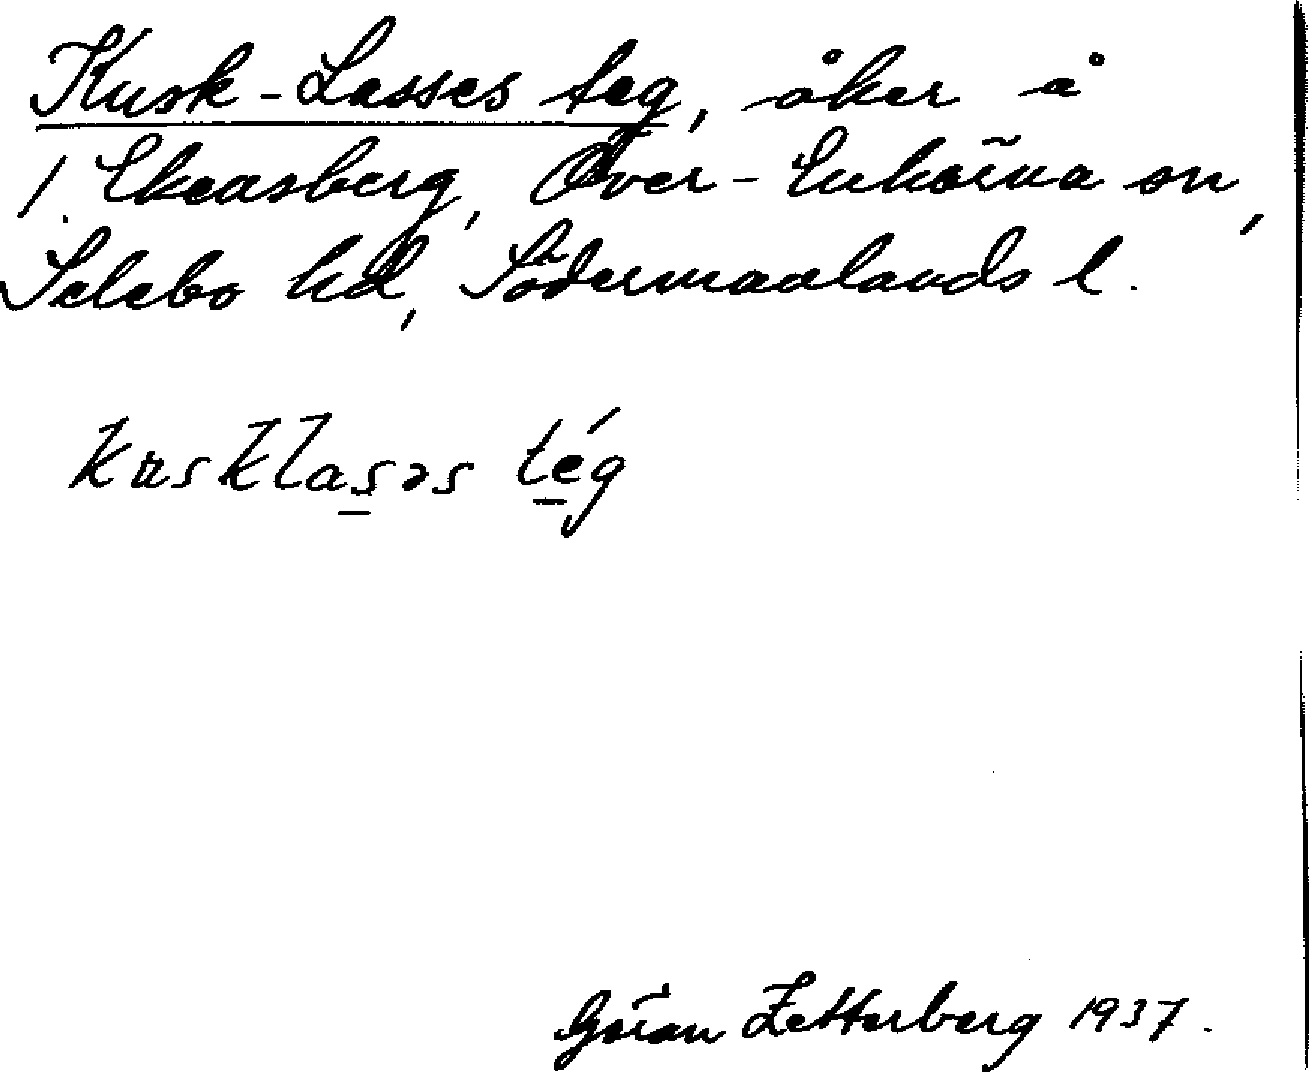 Kusk-Lasses teg, åker å
1 Ekeasberg, Över-Enhörna sn,
Selebo hd, Södermanlands l.
kusklas̠əs té̠g
Göran Zetterberg 1937.